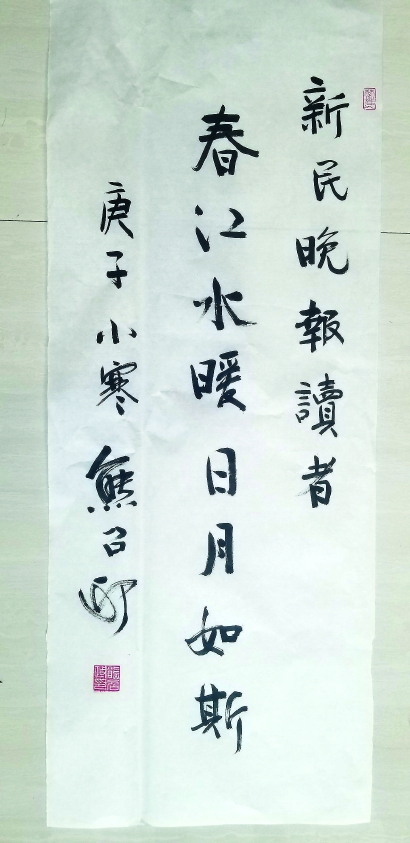 新民晚報讀者
春江水暖日月如斯
庚子小寒 熊召政